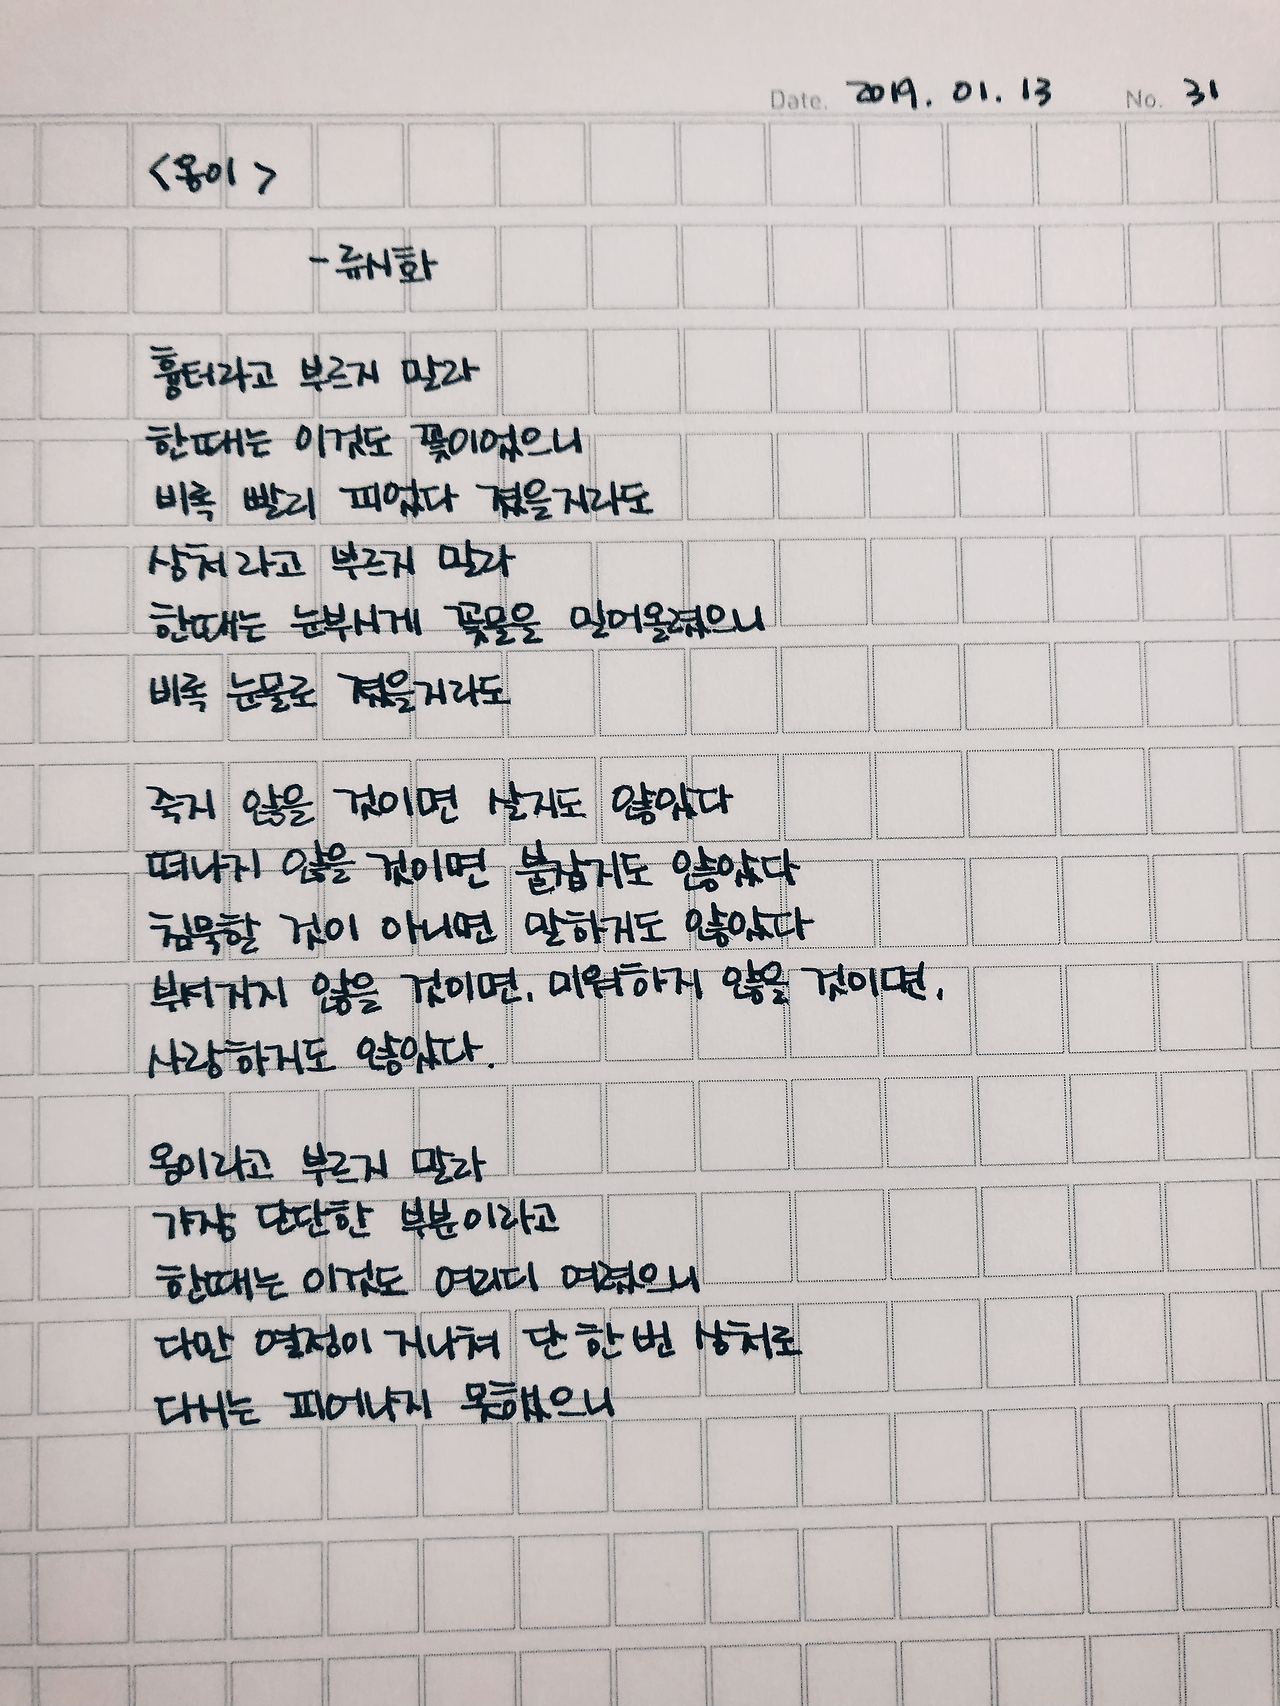 Date. 2019. 01. 13 No. 31
<옹이>
- 류시화
흉터라고 부르지 말라
한때는 이것도 꽃이었으니
비록 빨리 피었다 졌을지라도
상처라고 부르지 말라
한때는 눈부시게 꽃물을 밀어올렸으니
비록 눈물로 졌을지라도
죽지 않을 것이면 살지도 않았다
떠나지 않을 것이면 붙잡지도 않았다
침묵할 것이 아니면 말하지도 않았다
부서지지 않을 것이면, 미워하지 않을 것이면,
사랑하지도 않았다.
옹이라고 부르지 말라
가장 단단한 부분이라고
한때는 이것도 여리디 여렸으니
다만 열정이 지나쳐 단 한번 상처로
다시는 피어나지 못했으니